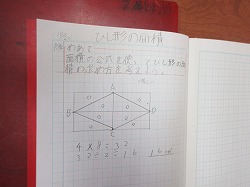 ひし形の面積
めあて
面積の公式を使って、ひし形の面
積の求め方を考えよう。
A
B
D
C
4×8=32
32÷2=16